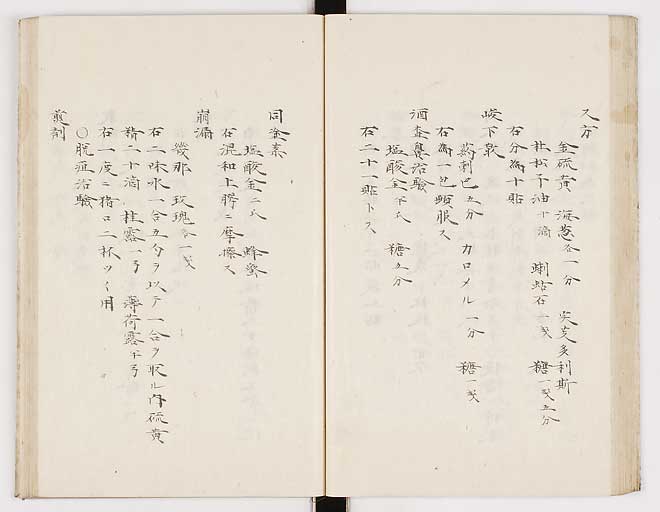 又方
金硫黄 海葱各一分 実芰多利斯
杜松子油十滴 蝲蛄石一戔 糖一戔五分
右分為十貼
峻下散
葯剌巴五分 カロメル一分 糖一戔
右為一包頓服ス
酒査鼻治験
塩酸金 糖五分
右二十一貼トス
同金素
塩酸金二氏 蜂蜜
右混和上膊ニ摩擦ス
崩漏
幾那 玫瑰各一戔
右二味水一合五勺ヲ以テ一合ヲ取ル内硫黄
精二十滴 桂露一弓 薄荷露半弓
右一度ニ猪口二杯ツヽ用
〇脱疽治験
煎剤